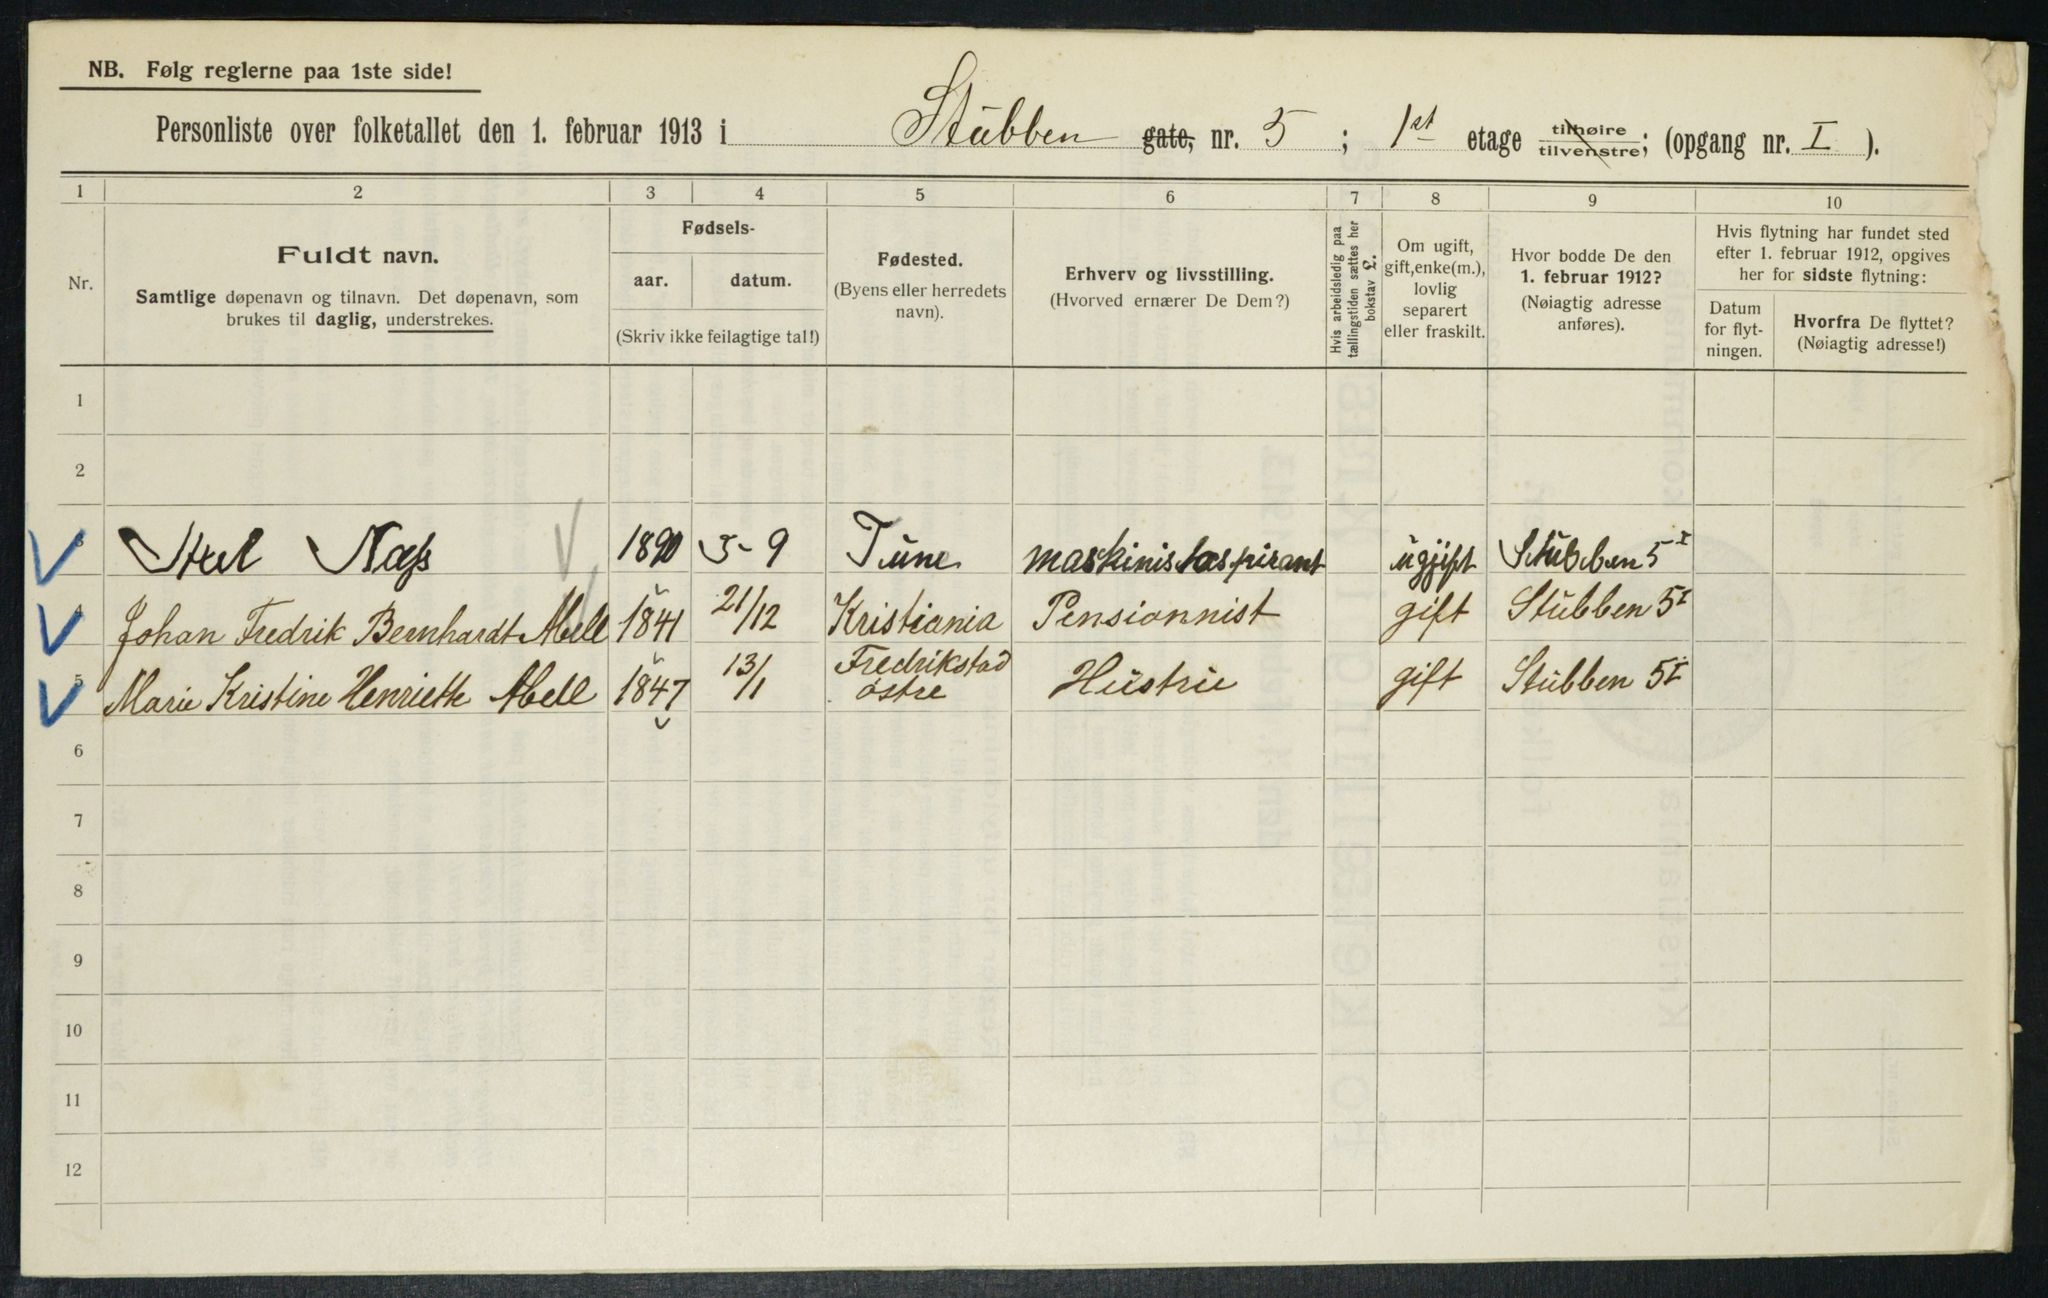 NB. Følg reglerne paa 1ste side!
Personliste over folketallet den 1. februar 1913 i Stubben gate, nr. 5 ; 1st etage tilhøire tilvenstre; (opgang nr. I ).
1 2 3 4 5 6 7 8 9 10
Nr.
Fuldt navn.
Samtlige døpenavn og tilnavn. Det døpenavn, som
brukes til daglig, understrekes.
Fødsels-
aar. datum.
(Skriv ikke feilagtige tal!)
Fødested.
(Byens eller herredets
navn).
Erhverv og livsstilling.
(Hvorved ernærer De Dem?)
Hvis arbeidsledig paa
tællingstiden sættes her
bokstav L.
Om ugift,
gift, enke(m.),
lovlig
separert
eller fraskilt.
Hvor bodde De den
1. februar 1912?
(Nøiagtig adresse
anføres).
Hvis flytning har fundet sted
efter 1. februar 1912, opgives
her for sidste flytning:
Datum
for flyt-
ningen.
Hvorfra De flyttet?
(Nøiagtig adresse!)
1
2
3 Axel Næss 1890 5-9 Tune maskinistaspirant ugjift Stubben 5 I
4 Johan Fredrik Bernhardt Abell 1841 21/12 Kristiania Pensionnist gift Stubben 5 I
5 Marie Kristine Henriette Abell 1847 13/1 Fredrikstad østre Hustru gift Stubben 5 I
6
7
8
9
10
11
12